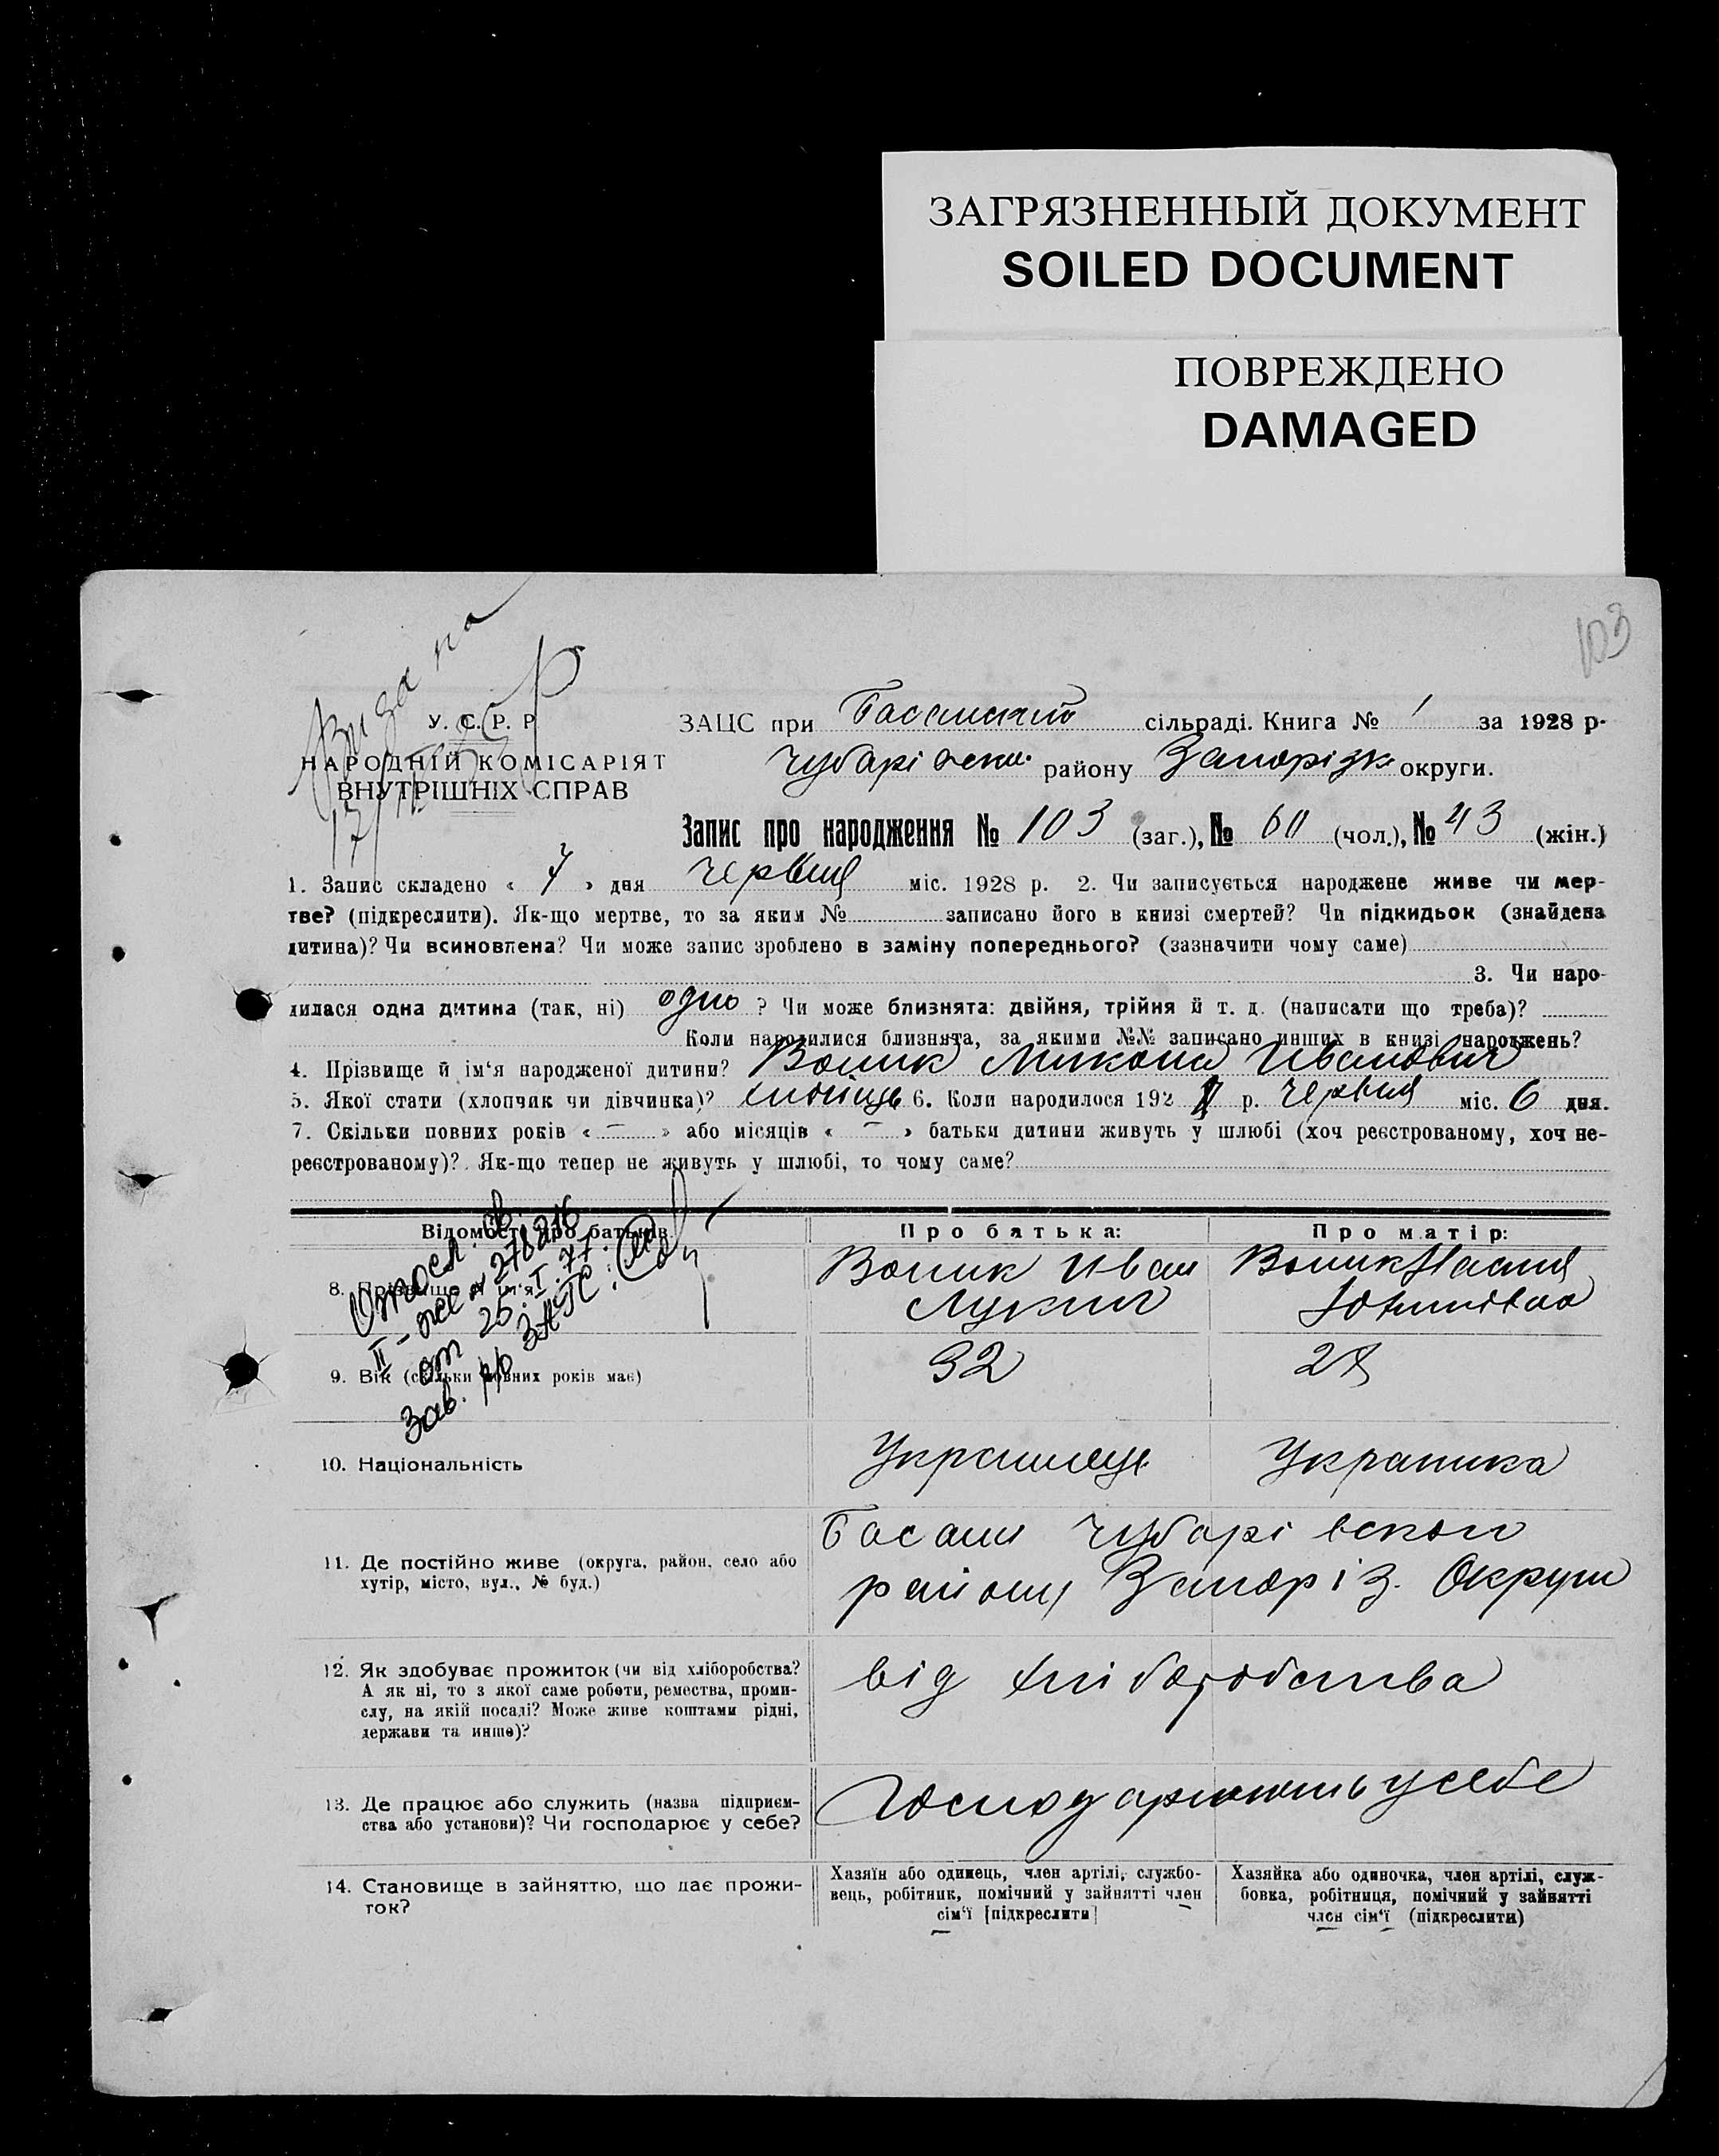 ЗАГРЯЗНЕННЫЙ ДОКУМЕНТ
SOILED DOCUMENT
ПОВРЕЖДЕНО
DAMAGED
103
У. С. Р. Р.
НАРОДНІЙ КОМІСАРІЯТ
ВНУТРІШНІХ СПРАВ
ЗАЦС при сільраді. Книга № 1 за 1928 р.
району округи.
Запис про народження № 103 (заг.), № 60 (чол.), № 43 (жін.)
1. Запис складено « 7 » дня червня міс. 1928 р. 2. Чи записується народжене живе чи мер-
тве? (підкреслити). Як-що мертве, то за яким № записано його в книзі смертей? Чи підкидьок (знайдена
дитина)? Чи всиновлена? Чи може запис зроблено в заміну попереднього? (зазначити чому саме)
3. Чи наро-
дилася одна дитина (так, ні) одно ? Чи може близнята: двійня, трійня й т. д. (написати що треба)?
Коли народилися близнята, за якими №№ записано инших в книзі народжень?
4. Прізвище й ім‘я народженої дитини? Волик Микола Иванович
5. Якої стати (хлопчяк чи дівчинка)? 6. Коли народилося 192 р. червня міс. 6 дня.
7. Скільки повних років « — » або місяців « — » батьки дитини живуть у шлюбі (хоч реєстрованому, хоч не-
реєстрованому)? Як-що тепер не живуть у шлюбі, то чому саме?
Відомості про батьків
Про батька:
Про матір:
8. Прізвище й ім‘я
Волик Иван
Волик
9. Вік (скільки повних років має)
32
10. Національність
Українець
Українка
11. Де постійно живе (округа, район, село або
хутір, місто, вул., № буд.)
Басань Чубарівского
району Запоріз. Округи
12. Як здобуває прожиток (чи від хліборобства?
А як ні, то з якої саме роботи, ремества, проми-
слу, на якій посаді? Може живе коштами рідні,
держави та инше)?
від хліборобства
13. Де працює або служить (назва підприєм-
ства або установи)? Чи господарює у себе?
Господарюють у себе
14. Становище в зайняттю, що дає прожи-
ток?
Хазяїн або одинець, член артілі, службо-
вець, робітник, помічний у зайнятті член
сім‘ї [підкреслити]
Хазяйка або одиночка, член артілі, служ-
бовка, робітниця, помічний у зайнятті
член сім‘ї (підкреслити)